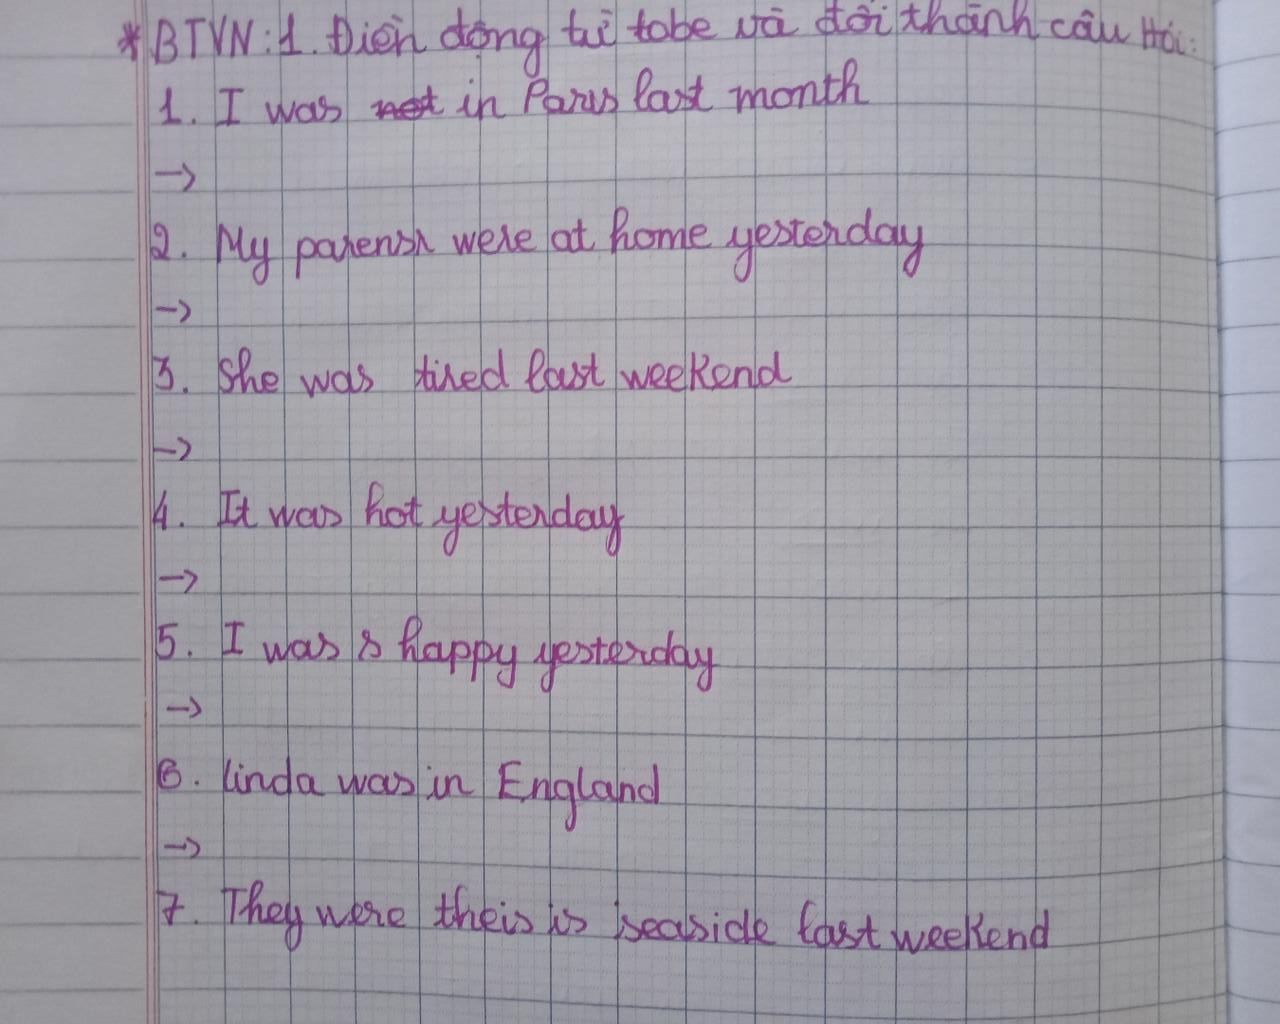 * BTVN: 1. Điền động từ tobe và đổi thành câu Hỏi:
1. I was not in Paris last month
→
2. My parensr were at home yesterday
→
3. She was tired last weekend
→
4. It was hot yesterday
→
5. I was s happy yesterday
→
6. Linda was in England
→
7. They were theis is seaside last weekend